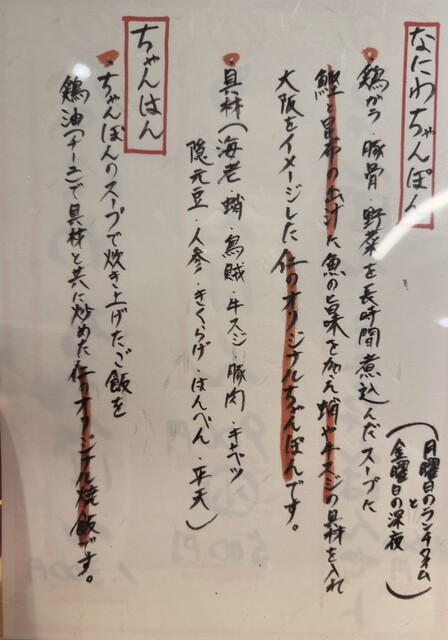 なにわちゃんぽん
(月曜日のランチタイム
と
金曜日の深夜)
・鶏ガラ・豚骨・野菜を長時間煮込んだスープに
鰹と昆布の出汁た魚の旨味を加え蛸や牛スジの具材を入れ
大阪をイメージした仁のオリジナルちゃんぽんです。
・具材(海老・蛸・烏賊・牛スジ・豚肉・キャベツ
隠元豆・人参・きくらげ・はんぺん・平天)
ちゃんはん
・ちゃんぽんのスープで炊き上げたご飯を
鶏油(チーユ)で具材と共に炒めた仁のオリジナル焼飯です。
500円